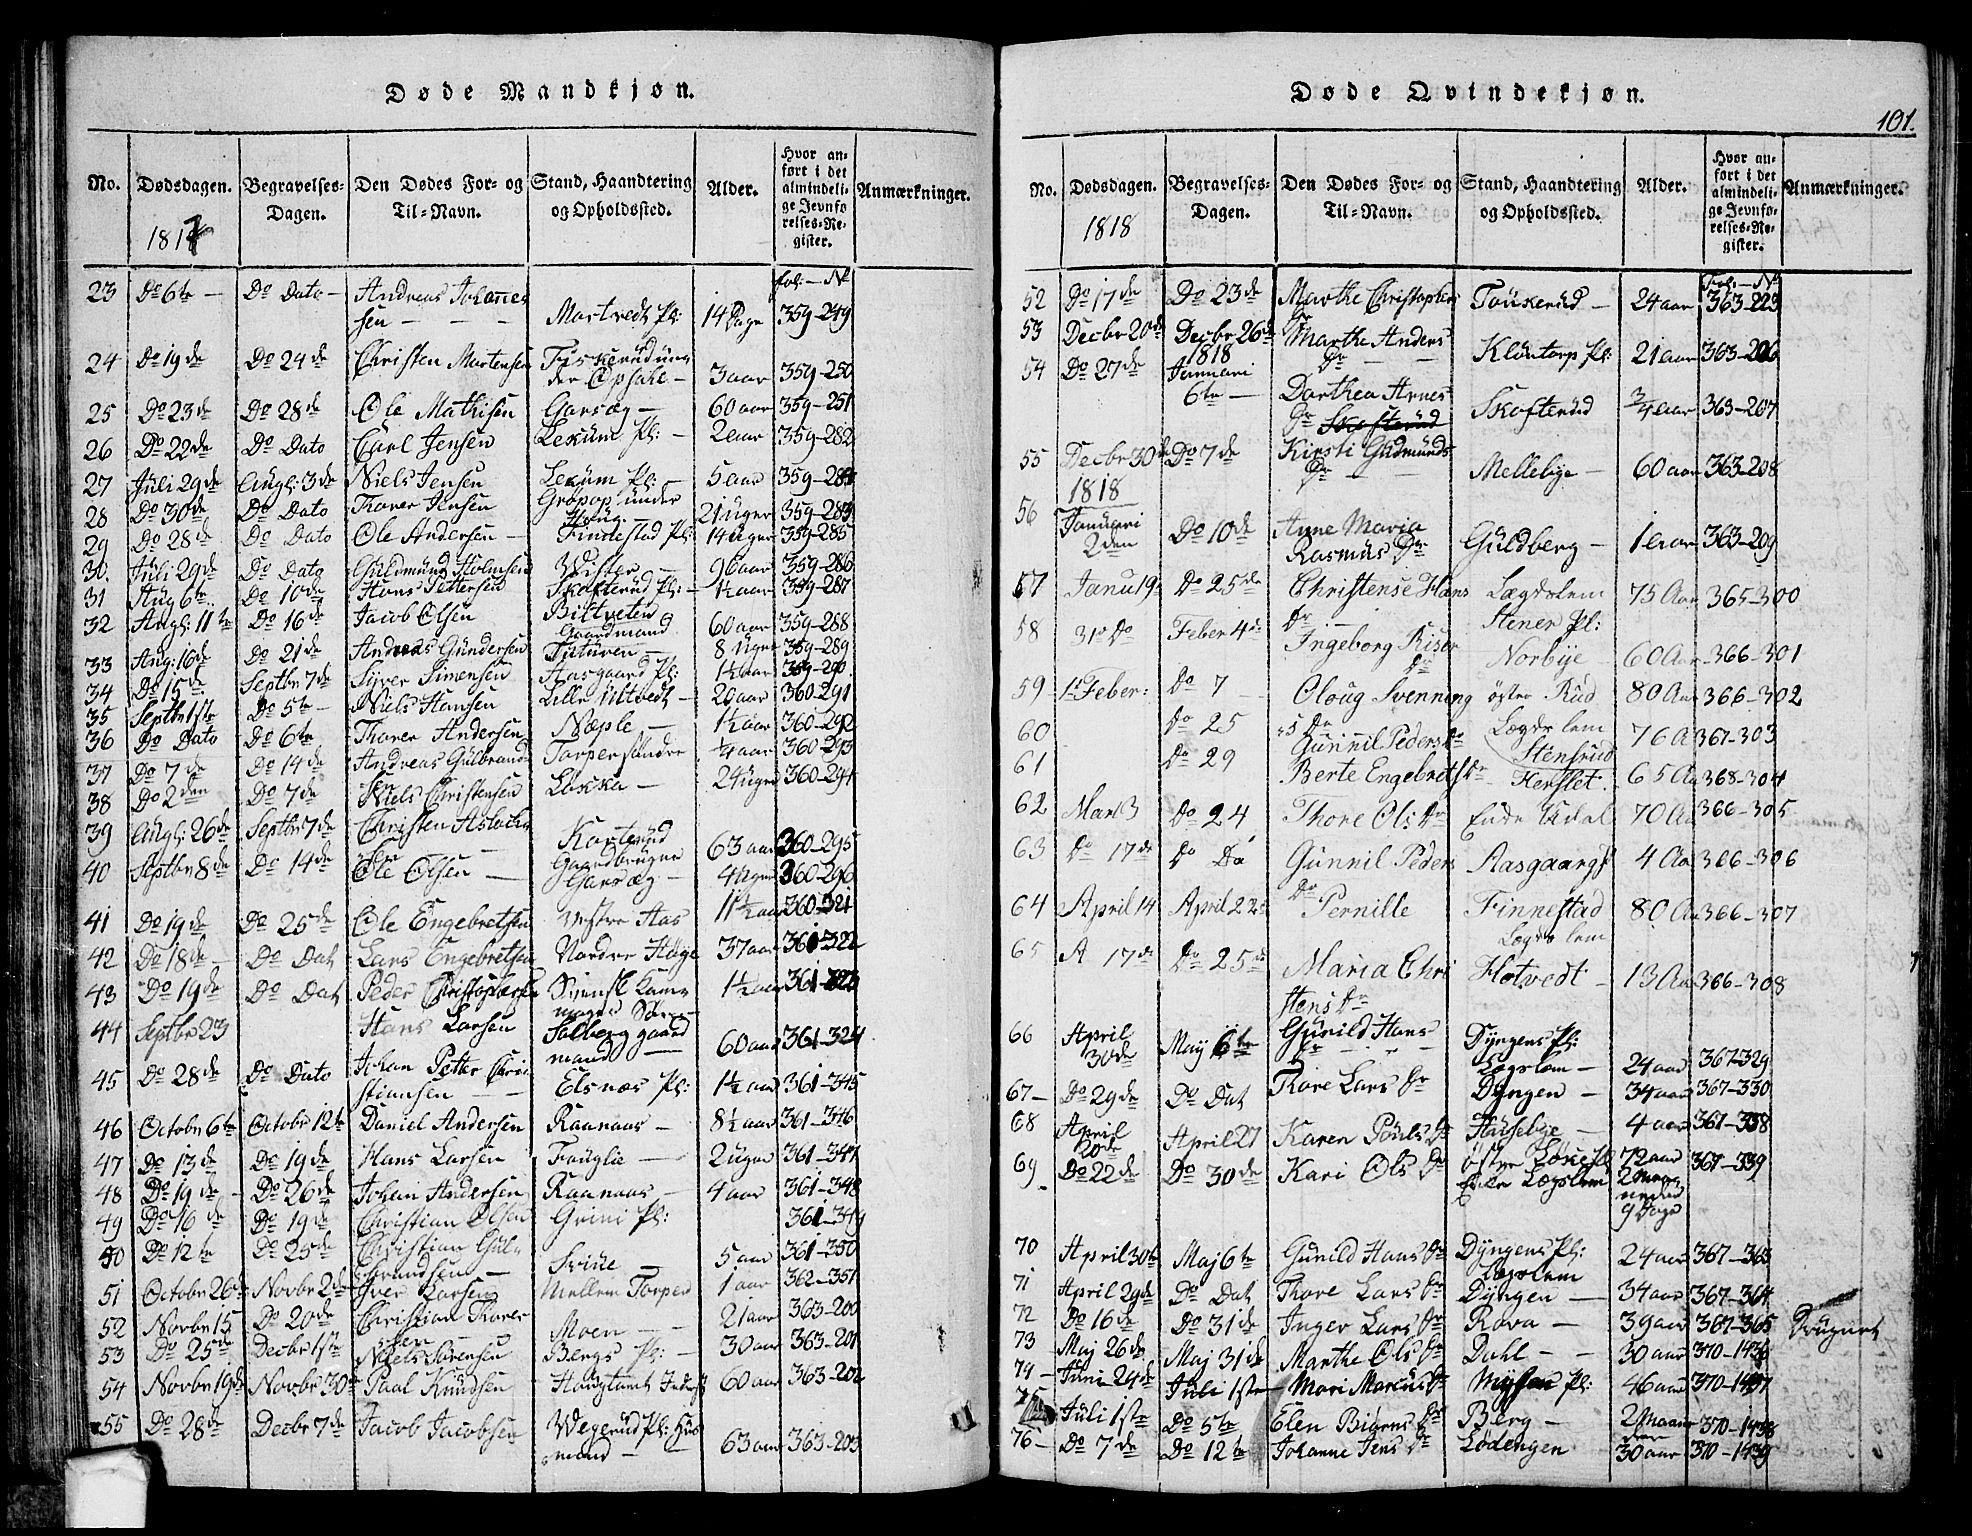 Døde Mandkjøn.
No. Dødsdagen. Begravelses-Dagen. Den Dødes For- og Til-Navn. Stand, Haandtering og Opholdssted. Alder. Hvor anført i det almindelige Jevnførelses-Register. Anmærkninger.
1817
fol: - No
23 Do 6te - Do Dato - Andreas Johannes
sen - - - Mortvedt Pl: 14 Dage 359-249
24 Do 19de Do 24de Christen Mortensen Fiskerud un
der Opsahl - 3 aar 359-250
25 Do 23de Do 28de Ole Mathisen Garsæg - 60 aar 359-251
26 Do 22de Do Dato Carl Jensen Lekum Pl: - 2 aar 359-282
27 Juli 29de Augl: 3de Niels Jensen Lekum Pl: - 5 aar 359-284
28 Do 30de Do Dato Thorer Jensen Gropop under
Houg. 21 Uger 359-283
29 Do 28de Do Dato Ole Andersen - Findestad Pl: 14 Uger 359-285
30. Juli 29de Do Dato Guldmund Holmsen Wister - 96 aar 359-286
31 Aug 6te Do 10de Hans Pettersen Skofterud Pl: - 1½ aar 359-287
32 Augl: 11te Do 16de Jacob Olsen Bittveten
Gaardmand 60 aar 359-288
33 Aug: 16de Do 21de Andreas Gundersen Tuturen - 8 Uger 359-289
34 Do 15de Septbr 7de Syver Simensen Aasgaard Pl: 1½ aar 359-290
35 Septbr 1ste Do 5te - Niels Hansen Lille Ultvedt - 20 aar 360-291
36 Do Dato Do 6te Thorer Andersen Næple - 1½ aar 360-292
37 Do 7de Do 14de Andreas Gulbrand Torper søndre ¼ aar 360-293
38 Do 2den Do 7de Niels Christensen Løkka - 24 Uger 360-294
39 Augl: 26de Septbr 7de Christen Aslack
sen Korterud
Gaardbruger 63 aar 360-295
40 Septbr 8de Do 14de Ole Olsen - Garsæg - 4 Uger 360-296
41 Do 19de Do 25de Ole Engebretsen Vestre Aas 11½ aar 360-321
42 Do 18de - Do Dat Lars Engebretsen Nordre Houge 37 aar 361-322
43 Do 19de Do Dat Peder Christophersen Svensk Kam
mager Søn - 1½ aar 361-323
44 Septbr 23 Hans Larsen Solberg gaard
mand - 60 aar 361-324
45 Do 28de Do Dato Johan Petter Chri
stiansen - - Elsnæs Pl: 1½ aar 361-345
46 Octobr 6te Octobr 12te Daniel Andersen Raanaas - 8½ aar 361-346
47 Do 13de Do 19de Hans Larsen Fauglie - 2 uger 361-347
48 Do 19de - Do 26de Johan Andersen Raanaas - 4 aar 361-348
49 Do 16de Do 19de Christian Olsen Grini Pl: 361-349
50 Do 12te Do 25de Christian Gul-
brandsen - Svine - 5 aar 361-350
51 Octobr 26de Novbr 2de Iver Larsen Mellem Torper 1 aar 362-351
52 Novbr 15 Do 20de Christian Thorer
sen - Moen - - 21 aar 363-200
53 Do 25de Decbr 1ste Niels Sørensen Bergs Pl: - 30 aar 363-201
54 Novbr 19de Novbr 30te Paal Knudsen 60 aar 363-202
55 Do 28de Decbr 7de Jacob Jacobsen Wegerud Pl: Hus
mand - 63 aar 363-203

Døde Qvindekjøn.
101.
No. Dødsdagen. Begravelses-Dagen. Den Dødes For- og Til-Navn. Stand, Haandtering og Opholdssted. Alder. Hvor anført i det almindelige Jevnførelses-Register. Anmærkninger.
1818
Fol: - No
52 Do 17de Do 23de Marthe Christophers
Dr Toukerud - 24 aar 363-223
53 Decbr 20de Decbr 26de Marthe Anders
Dr - - Klontorp Pl: 21 aar 363-206
54 Do 27de 1818 Januari
6te - Dorthea Arnes
Dr Skofterud Skofterud ¾ aar 363-207
55 Decbr 30de Do 7de Kirsti Gudmunds
Dr - Mellebye - 60 aar 363-208
1818
56 Januari
2den Do 10de Anne Maria
Rasmus Dr Guldberg - 1 aar 363-209
57 Janu 19 Do 25de Christense Hans
Dr - Lægdslem
Stener Pl: 75 Aar 365-300
58 31 Do Feber 4de Ingeborg Riser
Dr Norbye - 60 Aar 366-301
59 1 Feber: Do 7 - Oloug Svenning
s Dr østre Rud 80 Aar 366-302
60 Do 25 Gunnil Peders Dr Lægds lem
Stensrud 76 A 367-303
61 Do 29 Berte Engebrets Dr Herslet. 65 Aa 368-304
62 Mar 3 Do 24 Thore Ols Dr Ende Udal 70 Aa 366-305
63 Do 17de Do Do Gunnil Peders
Dr Aasgaard 4 Aa 366-306
64 April 14 April 22 Pernille Finnestad
Lægds lem 80 Aa 366-307
65 A 17de Do 25de Maria Chri
stens Dr Hotvedt - 13 Aa 366-308
66 April
30de May 6te Gunild Hans
Dr - - Dyngens Pl:
Lægslem - 24 aar 367-329
67 - Do 29de Do Dat Thore Lars Dr Dyngen - 34 aar 367-330
68 April
20de April 27 Karen Pouls Dr Hausebye - 4 aar 367-338
69 Do 22de Do 30de Kari Ols Dr østre Løken Pl
Lægslem 72 aar
2 Maa
neder
9 Dage 367-339
70 April 30te Maj 6te Gunild Hans Dr Dyngens Pl:
Lægslem 24 aar 367-363
71 April 29de Do Dat Thore Lars Dr Dyngen - 34 aar 367-364
72 Do 16de Do 31de Inger Lars Dr Rova - 39 aar 367-365 Drugnet
73 Maj 26de Maj 31de Marthe Ols Dr Dahl - - 30 aar 370-1436
74 - Juni 24de Juli 1ste Mari Marcus Dr Mysen Pl: 46 aar 370-1437
75 Juli 1ste Do 5te Elen Biørns Dr Berg - 2 Maane
der 370-1438
76 - Do 7de Do 12te Johanne Jens Dr Lødengen 30 aar 370-1439